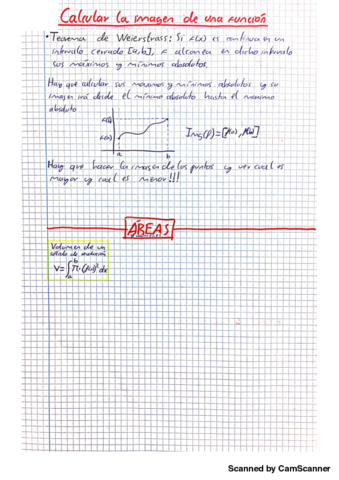 Calcular la imagen de una función
• Teorema de Weierstrass: Si f(x) es continua en un
intervalo cerrado [a,b], f alcanza en dicho intervalo
sus máximos y mínimos absolutos.
Hay que calcular sus maximos y mínimos absolutos y su
imagen irá desde el mínimo absoluto hasta el maximo
absoluto
f(b)
f(a)
a b
Img(f)=[f(a), f(b)]
Hay que hacer la imagen de los puntos y ver cual es
mayor y cual es menor!!!
ÁREAS
Volumen de un
sólido de revolución
V=∫ₐᵇ π·(f(x))² dx
Scanned by CamScanner